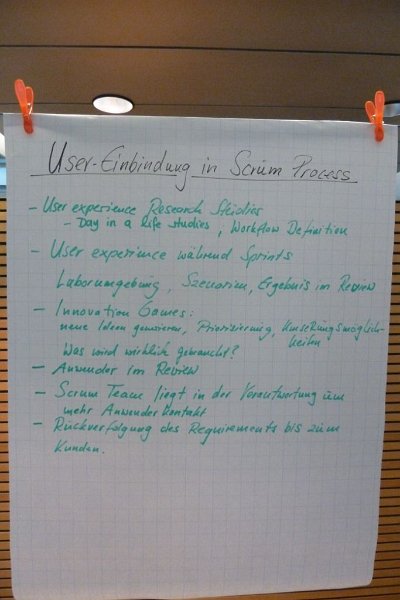 User-Einbindung in Scrum Process
- User experience Research Studies
- Day in a life studies, Workflow Definition
- User experience während Sprints
Laborumgebung, Szenarien, Ergebnis im Review
- Innovation Games:
neue Ideen generieren, Priorisierung, Umsetzungsmöglich-
keiten
Was wird wirklich gebraucht?
- Anwender im Review
- Scrum Team liegt in der Verantwortung um
mehr Anwender Kontakt
- Rückverfolgung des Requirements bis zum
Kunden.